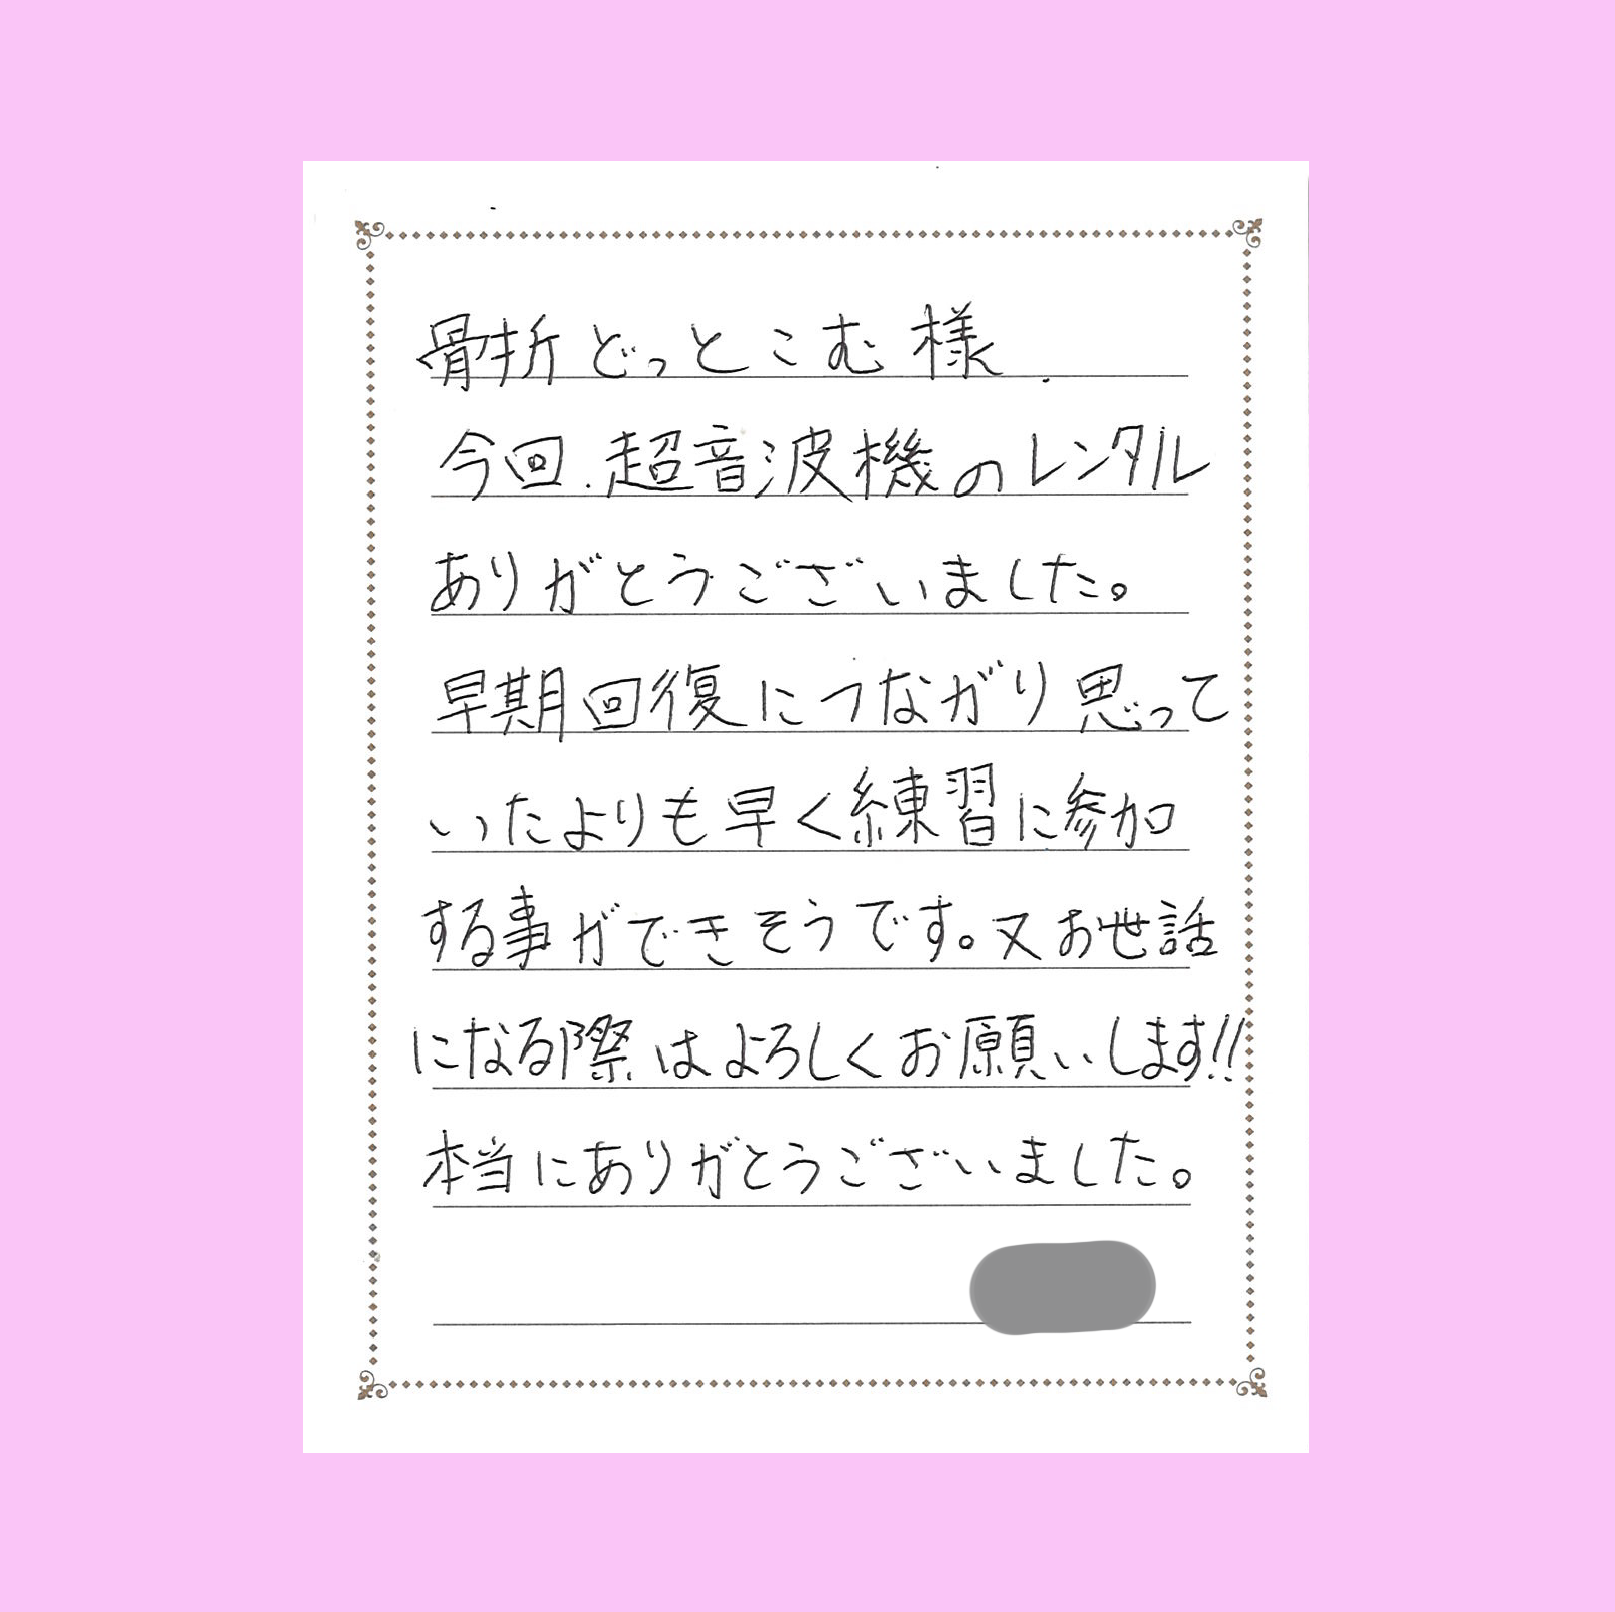 骨折どっとこむ様
今回、超音波機のレンタル
ありがとうございました。
早期回復につながり思って
いたよりも早く練習に参加
する事ができそうです。又お世話
になる際はよろしくお願いします!!
本当にありがとうございました。